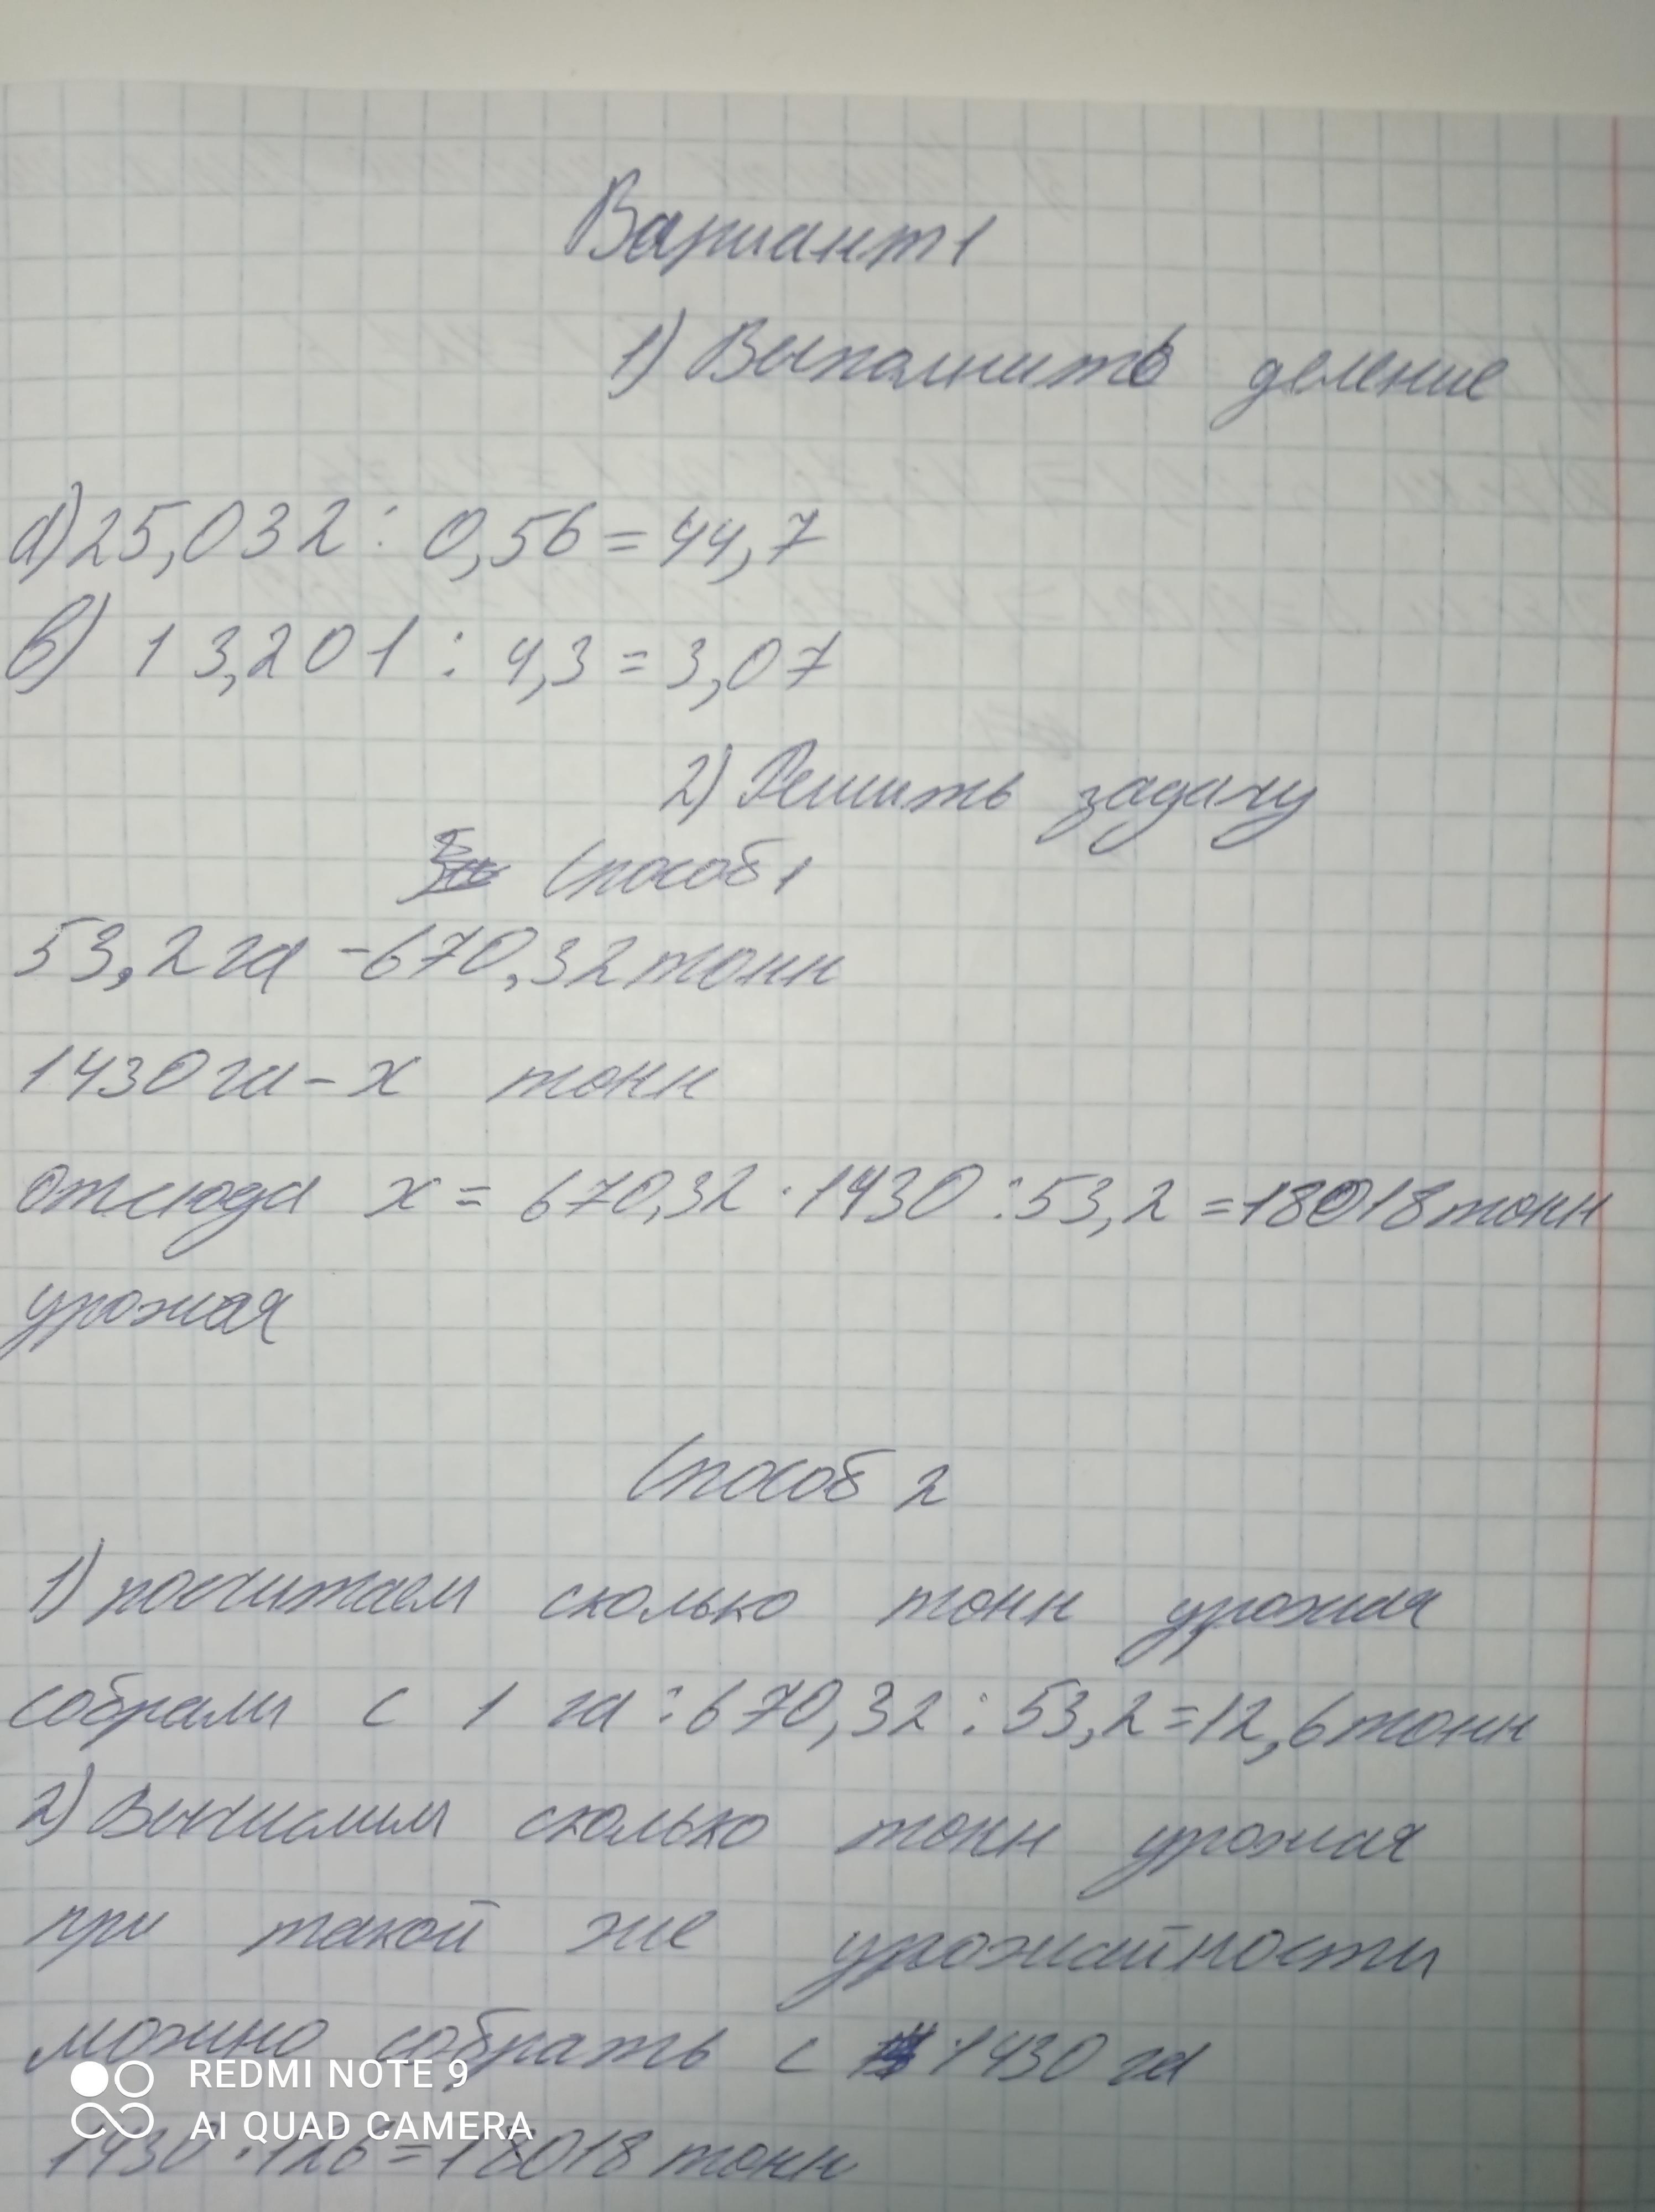 Вариант 1
1) Выполнить деление
а) 25,032 : 0,56 = 44,7
в) 13,201 : 4,3 = 3,07
2) Решить задачу
Способ 1
53,2 га - 670,32 тонн
1430 га - х тонн
отсюда х = 670,32 · 1430 : 53,2 = 18018 тонн
урожая
Способ 2
1) посчитаем сколько тонн урожая
собрали с 1 га : 670,32 : 53,2 = 12,6 тонн
2) Вычислим сколько тонн урожая
при такой же урожайности
можно собрать с 1430 га
REDMI NOTE 9
AI QUAD CAMERA
1430 · 126 = 18018 тонн